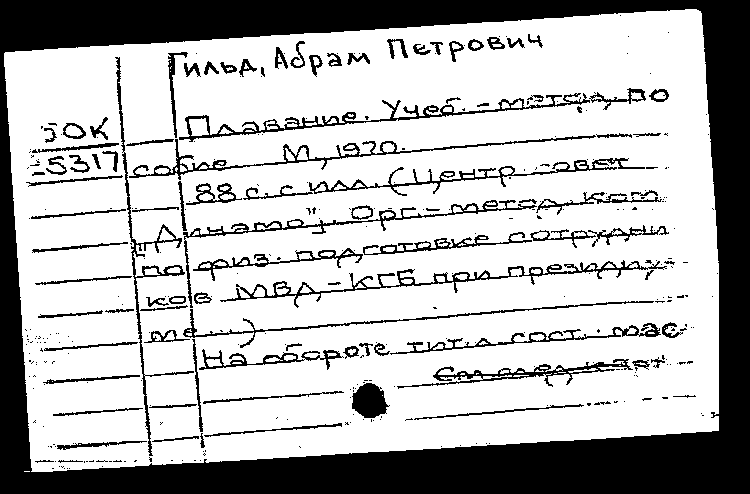 Гильд, Абрам Петрович
Плавание. Учеб.-метод, по
JOK
-5317
собие. М., 1970.
88 с. с илл. (Центр. совет
"Динамо". Орг.-метод. ком
по физ. подготовке сотрудни
ков МВД-КГБ при президиу-
ме...)
На обороте тит.л сост. мас
См след карт